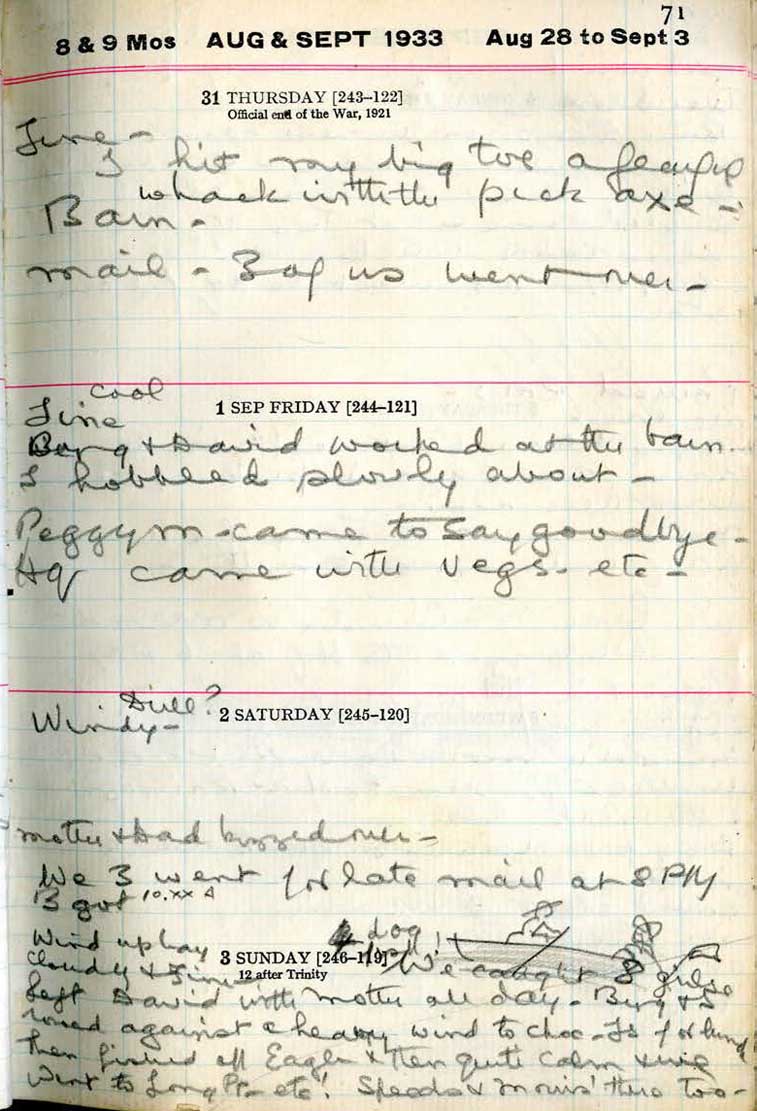 71
8 & 9 Mos AUG & SEPT 1933 Aug 28 to Sept 3
31 THURSDAY [243-122]
Official end of the War, 1921
Fine -
I hit my big toe a fearful
whack with the pick axe -
Barn -
mail - 3 of us went over -
cool
1 SEP FRIDAY [244-121]
Fine
& David worked at the barn
I hobbled slowly about -
Peggy M - came to say goodbye -
came with Vegs - etc -
Dull?
2 SATURDAY [245-120]
Windy -
Mother & Dad buzzed over -
We 3 went for late mail at 8 PM
B got 10.xx
dog
Wind up bay
3 SUNDAY [246-119]
We caught 8 grilse
Cloudy & Fine
12 after Trinity
Left David with mother all day - &
rowed against a heavy wind to for lunch
Then fished off Eagle & then quite calm &
Went to Long Pt - etc! there too -